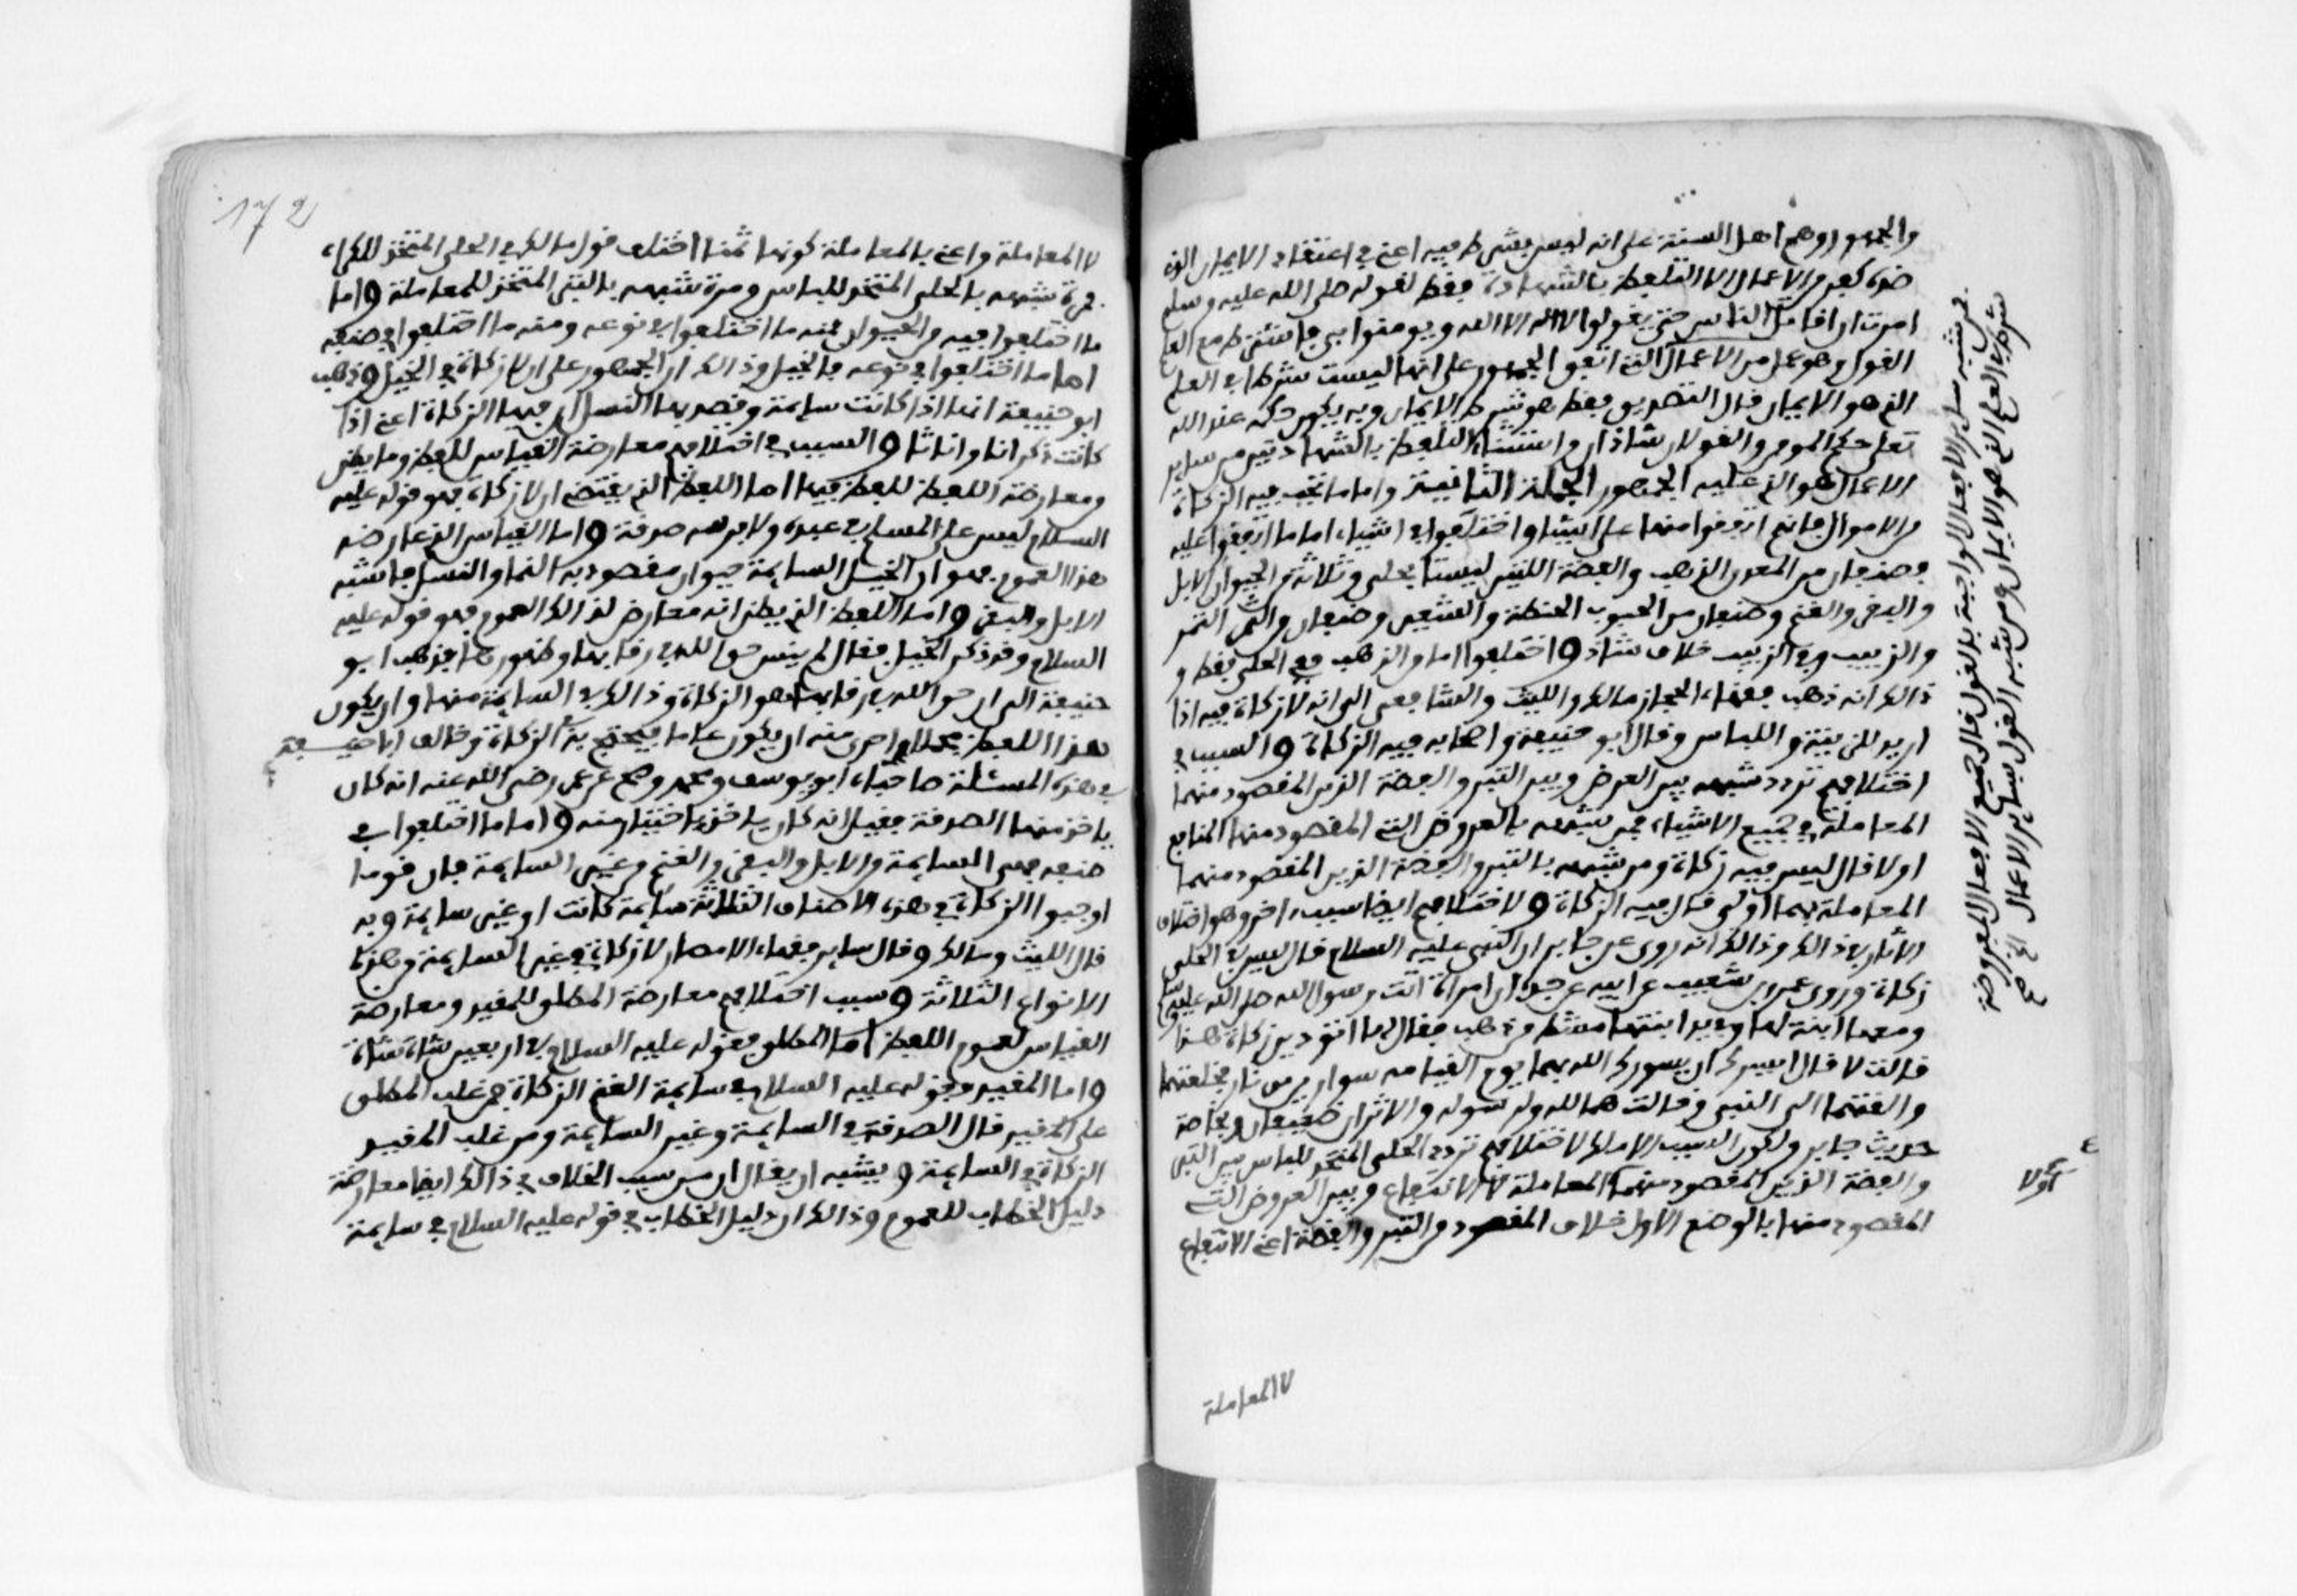 والجمهور وهم اهل السنة على انه ليس يشترط فيه اعني في اعتقاد الايمان الذي
ضده كفر من الاعمال الا التلفظ بالشهادة فقط لقوله صلى الله عليه وسلم
امرت ان اقاتل الناس حتى يقولوا لا اله الا الله ويومنوا بي فاشترط مع العلم
القول وهو عمل من الاعمال التي اتفق الجمهور على انها ليست شرطا في العلم
الذي هو الايمان قال التصديق فقط هو شرط الايمان وبه يكون حكمه عند الله
تعلى حكم المومن والقولان شاذان واستثناء التلفظ بالشهادتين من ساير
الاعمال هو الذي عليه الجمهور الجملة الثانية واما ما تجب فيه الزكاة
من الاموال فانهم اتفقوا منها على اشياء واختلفوا في اشياء اما ما اتفقوا عليه
فصنفان من المعدن الذهب والفضة اللتين ليستا بحلي وثلاثة من الحيوان الابل
والبقر والغنم وصنفان من الحبوب الحنطة والشعير وصنفان من الثمر التمر
والزبيب وفي الزبيب خلاف شاذ واختلفوا اما من الذهب ففي الحلي فقط و
ذالك انه ذهب فقهاء الحجاز مالك والليث والشافعي الى انه لا زكاة فيه اذا
اريد للزينة واللباس وقال ابو حنيفة واصحابه فيه الزكاة والسبب في
اختلافهم تردد شبهه بين العرض وبين التبر والفضة الذين المقصود منهما
المعاملة في جميع الاشياء فمن شبهه بالعروض التي المقصود منها المنافع
اولا قال ليس فيه زكاة ومن شبهه بالتبر والفضة الذين المقصود منهما
المعاملة بهما اولى قال فيه الزكاة ولاختلافهم ايضا سبب اخر وهو اختلاف
الاثار في ذالك وذالك انه روى عن جابر ان النبي عليه السلام قال ليس في الحلي
زكاة وروى عمرو بن شعيب عن ابيه عن جده ان امراة اتت رسول الله صلى الله عليه وسلم
ومعها ابنة لها وفي يد ابنتها مسك من ذهب فقال لها اتودين زكاة هذا
قالت لا قال ايسرك ان يسورك الله بهما يوم القيامه سوارين من نار فخلعتهما
والقتهما الى النبي وقالت هما لله ولرسوله والاثران ضعيفان وبخاصة
حديث جابر ولكون السبب الاملك لاختلافهم تردد الحلي المتخذ للباس بين التبر
والفضة الذين المقصود منهما المعاملة لا الانتفاع وبين العروض التي
المقصود منها بالوضع الاول خلاف المقصود من التبر والفضة اعني الانتفاع
لا المعاملة
فمن شبه ساير الافعال الواجبة بالقول قال جميع الافعال المفروضة
شرط في العلم الذي هو الايمان ومن شبه القول بساير الاعمال الخ صح
172
لا المعاملة واعني بالمعاملة كونها ثمنا اختلف قول مالك في الحلي المتخذ للكراء
فمرة شبهه بالحلي المتخذ للباس ومرة شبهه بالتبر المتخذ للمعاملة واما
ما اختلفوا فيه من الحيوان فمنه ما اختلفوا في نوعه ومنه ما اختلفوا في صنفه
اما ما اختلفوا في نوعه فالخيل وذالك ان الجمهور على ان لا زكاة في الخيل وذهب
ابو حنيفة انها اذا كانت سايمة وقصد بها النسل ان فيها الزكاة اعني اذا
كانت ذكرانا واناثا والسبب في اختلافهم معارضة القياس للفظ وما يظن
ومعارضة اللفظ للفظ فيها اما اللفظ الذي يقتضي ان لا زكاة فهو قوله عليه
السلام ليس على المسلم في عبده ولا فرسه صدقة واما القياس الذي عارضه
هذا العموم فهو ان الخيل السايمة حيوان مقصود به النما والنسل فاشبه
الابل والبقر واما اللفظ الذي يظن انه معارض لذالك العموم فهو قوله عليه
السلام وقد ذكر الخيل فقال لم ينس حق الله في رقابها وظهورها فذهب ابو
حنيفة الى ان حق الله في رقابها هو الزكاة وذالك في السايمة منها وان يكون
هذا اللفظ مجملا احرى منه ان يكون عاما فيحتج به في الزكاة وخالف ابا حنيفة
في هذه المسئلة صاحباه ابو يوسف ومحمد وصح عن عمر رضي الله عنه انه كان
ياخذ منها الصدقة فقيل انه كان ياخذها اختيار منه واما ما اختلفوا في
صنفه فهي السايمة من الابل والبقر والغنم وغير السايمة فان قوما
اوجبوا الزكاة في هذه الاصناف الثلاثة سايمة كانت او غير سايمة وبه
قال الليث ومالك وقال ساير فقهاء الامصار لا زكاة في غير السايمة من هذه
الانواع الثلاثة وسبب اختلافهم معارضة المطلق للمقيد ومعارضة
القياس لعموم اللفظ اما المطلق فقوله عليه السلام في اربعين شاة شاة
واما المقيد فقوله عليه السلام في سايمة الغنم الزكاة فمن غلب المطلق
على المقيد قال الصدقة في السايمة وغير السايمة ومن غلب المقيد
الزكاة في السايمة ويشبه ان يقال ان من سبب الخلاف في ذالك ايضا معارضة
دليل الخطاب للعموم وذالك ان دليل الخطاب في قوله عليه السلام في سايمة